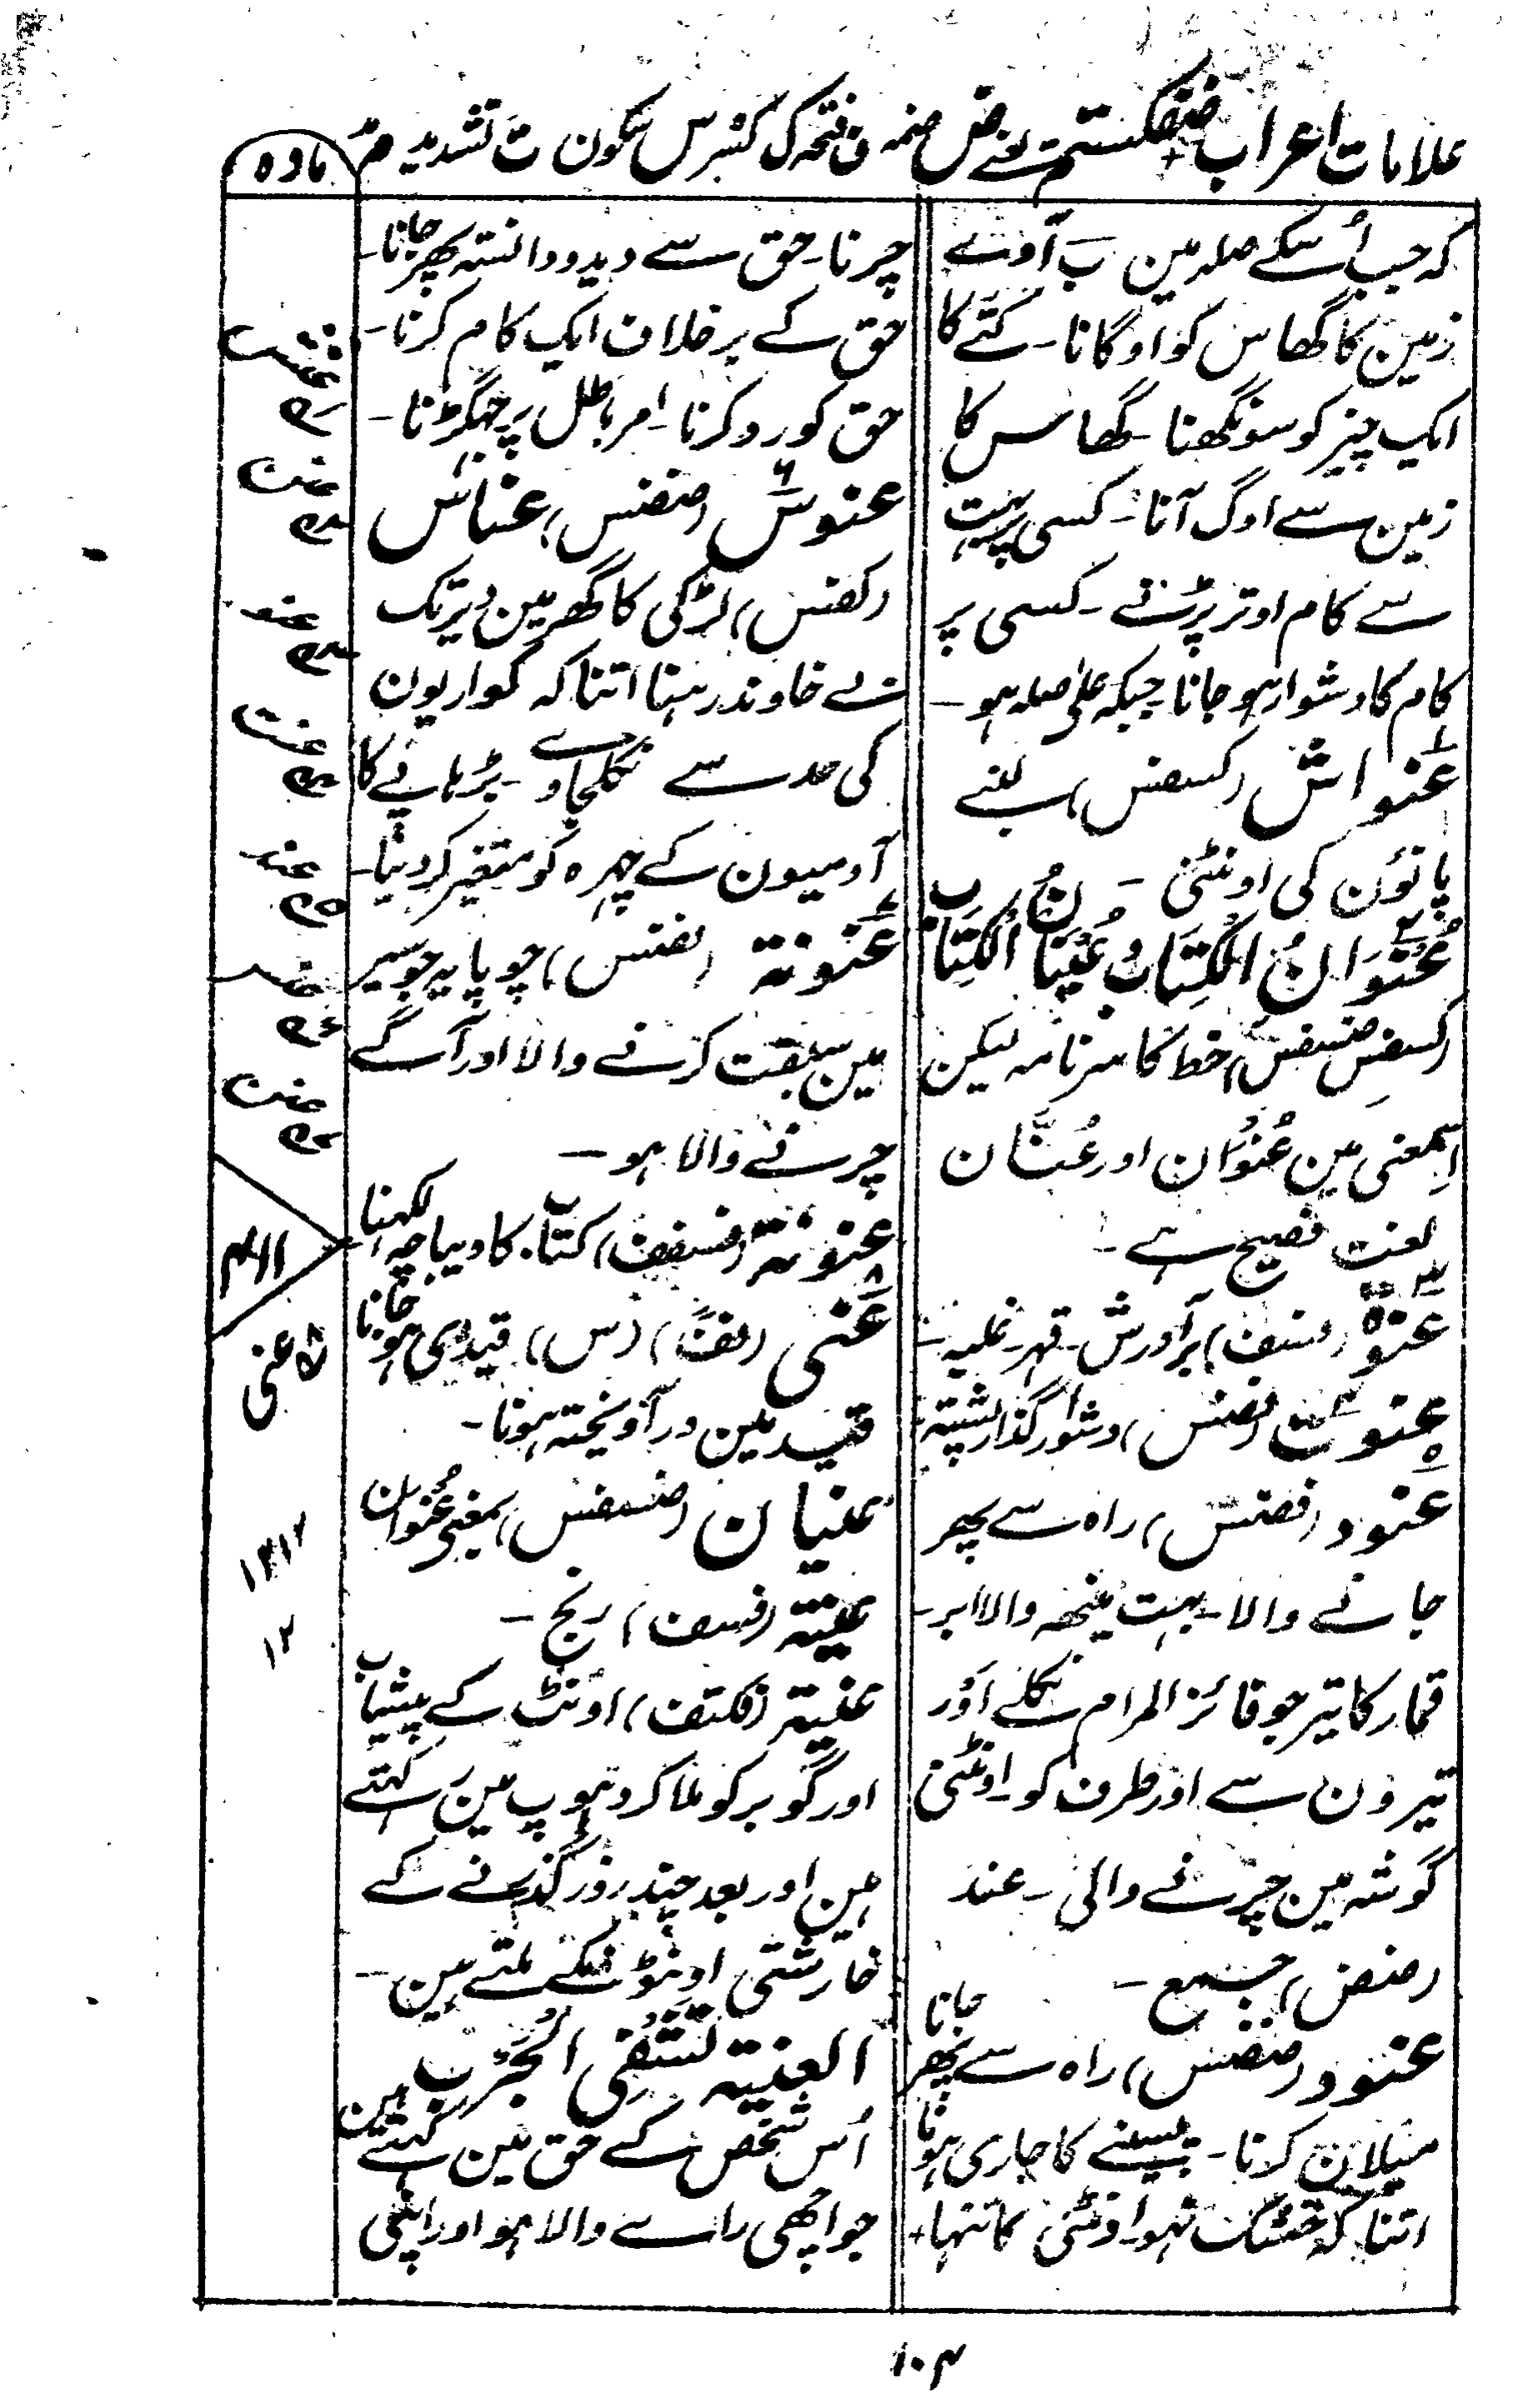 علامات اعراب ضفکستم یعنے ض ضمہ ف فتحہ ک کسر س سکون ت تشدید م مد
مادہ
کہ جب اُسکے صلہ مین ب آوے
زمین کا گھاس کو اوگانا۔ کتے کا
ایک چیز کو سونگھنا۔ گھاس کا
زمین سے اوگ آنا۔ کسی پر ہیبت
سے کام اوتر پڑنے۔ کسی پر
کام کا دشوار ہو جانا جبکہ علیٰ صلہ ہو۔
عنواش (کسفس) لنبے
پانوٴن کی اونٹنی۔
عُنْوَانُ الْکِتَابُ عُنْیَانُ الْکِتَاب
(کسفس ضسفس) خط کا سرنامہ لیکن
اِسمعنی مین عُنْوُان اور عُنَّان
لغت فصیح ہے۔
عَنْوَۃٌ (فسف) برآورش۔ قہر۔ غلبہ۔
عنوت (فضس) دشوار گذار پشتہ
عَنود (فضس) راہ سے پھر
جانے والا۔ بہت مینھہ والا ابر۔
قمار کا تیر جو فائز المرام نکلے اوَر
تیرون سے اور طرف کو۔ اونٹنی
گوشہ مین چرنے والی۔ عند
(ضض) جمع۔
عنود (ضضس) راہ سے پھر جانا
میلان کرنا۔ پسینے کا جاری ہونا
اتنا کہ خشک نہو۔ اونٹنی کا تنہا
چرنا۔ حق سے دیدہ و دانستہ پھر جانا۔
حق کے برخلاف ایک کام کرنا۔
حق کو رد کرنا۔ امر باطل پر جہگڑنا۔
عنوس (ضضس) عناس
(کفس) لڑکی کا گھر مین دیر تک
بے خاوند رہنا اتنا کہ کواریون
کی حد سے نکلجاوے۔ بڑہاپے کا
آدمیون کے چہرہ کو متغیر کر دینا۔
عَنونۃ (فضس) چوپایہ جو سیر
مین سبقت کرنے والا اور آگے
چرنے والا ہو۔
عنونۃ (فسفف) کتاب کا دیباچہ لکہنا
عَنی (ففً) (س) قیدی ہو جانا
قید مین درآویختہ ہونا۔
عنیان (ضسفس) بمعنی عُنْوُان
عنیۃ (فسف) رنج۔
عنیۃ (فکتف) اونٹ کے پیشاب
اور گوبر کو ملا کر دہوپ مین رکہتے
ہین اور بعد چند روز گذرنے کے
خارشتی اونٹونکے ملتے ہین۔
العنیۃ تَشْفِی الْجَرَب
اُس شخص کے حق مین کہتے ہین
جو اچھی راے والا ہو اور اپنی
عنت
عند
عنی
۱۲۱۲
۱۲
۱۰۴